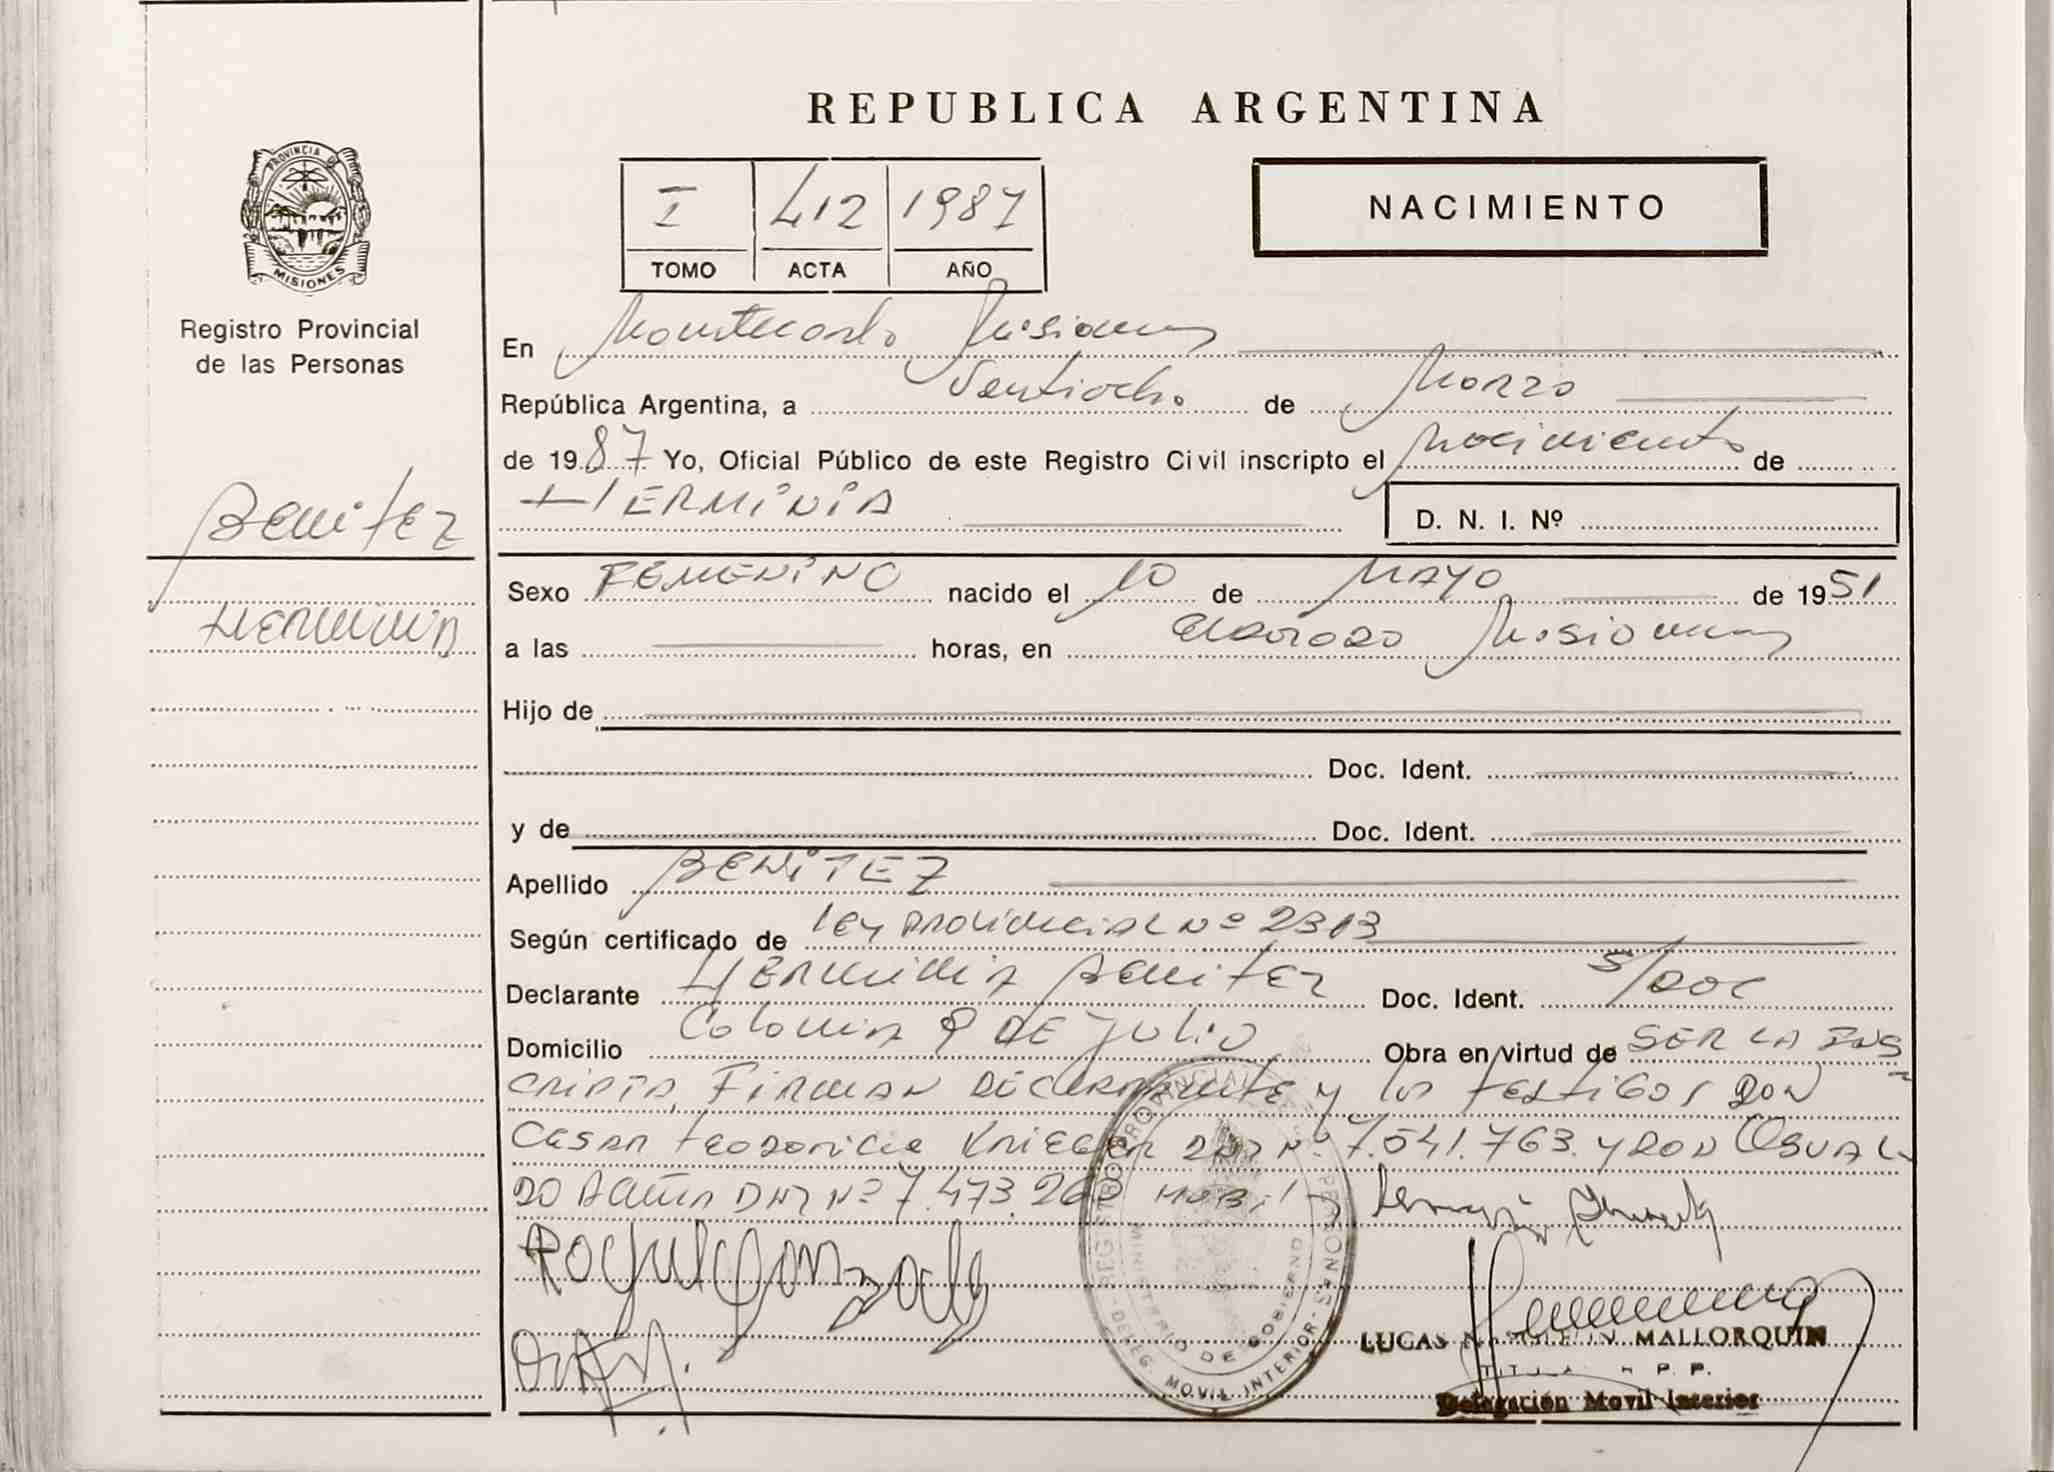 REPUBLICA ARGENTINA
PROVINCIA DE
MISIONES
Registro Provincial
de las Personas
I 412 1987
TOMO ACTA AÑO
NACIMIENTO
En Montecarlo Misiones
República Argentina, a Veintiocho de Marzo
de 1987 Yo, Oficial Público de este Registro Civil inscripto el Nacimiento de
HERMINIA
D. N. I. Nº
Benitez
HERMINIA
Sexo FEMENINO nacido el 10 de MAYO de 1951
a las horas, en Eldorado Misiones
Hijo de
Doc. Ident.
y de Doc. Ident.
Apellido BENITEZ
Según certificado de Ley Provincial Nº 2313
Declarante Herminia Benitez Doc. Ident. S/DOC
Domicilio Colonia 9 DE Julio Obra en virtud de SER LA INS
CRIPTA, FIRMAN DECLARANTE y los testigos DON
CESAR Krieger DNI Nº 7.541.763. y DON OSVAL-
DO Acuña DNI Nº 7.473.263
Roque Gonzalez
REGISTRO PROVINCIAL DE LAS PERSONAS
MINISTERIO DE GOBIERNO
DELEG. MOVIL INTERIOR
LUCAS MALLORQUIN
TITULAR R.P.P.
Delegación Movil Interior